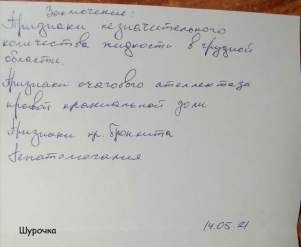 Заключение:
Признаки незначительного
количества жидкости в грудной
области.
Признаки очагового ателектаза
правой краниальной доли
Признаки хр. бронхита
Гепатомегалия
Шурочка
14.05.21